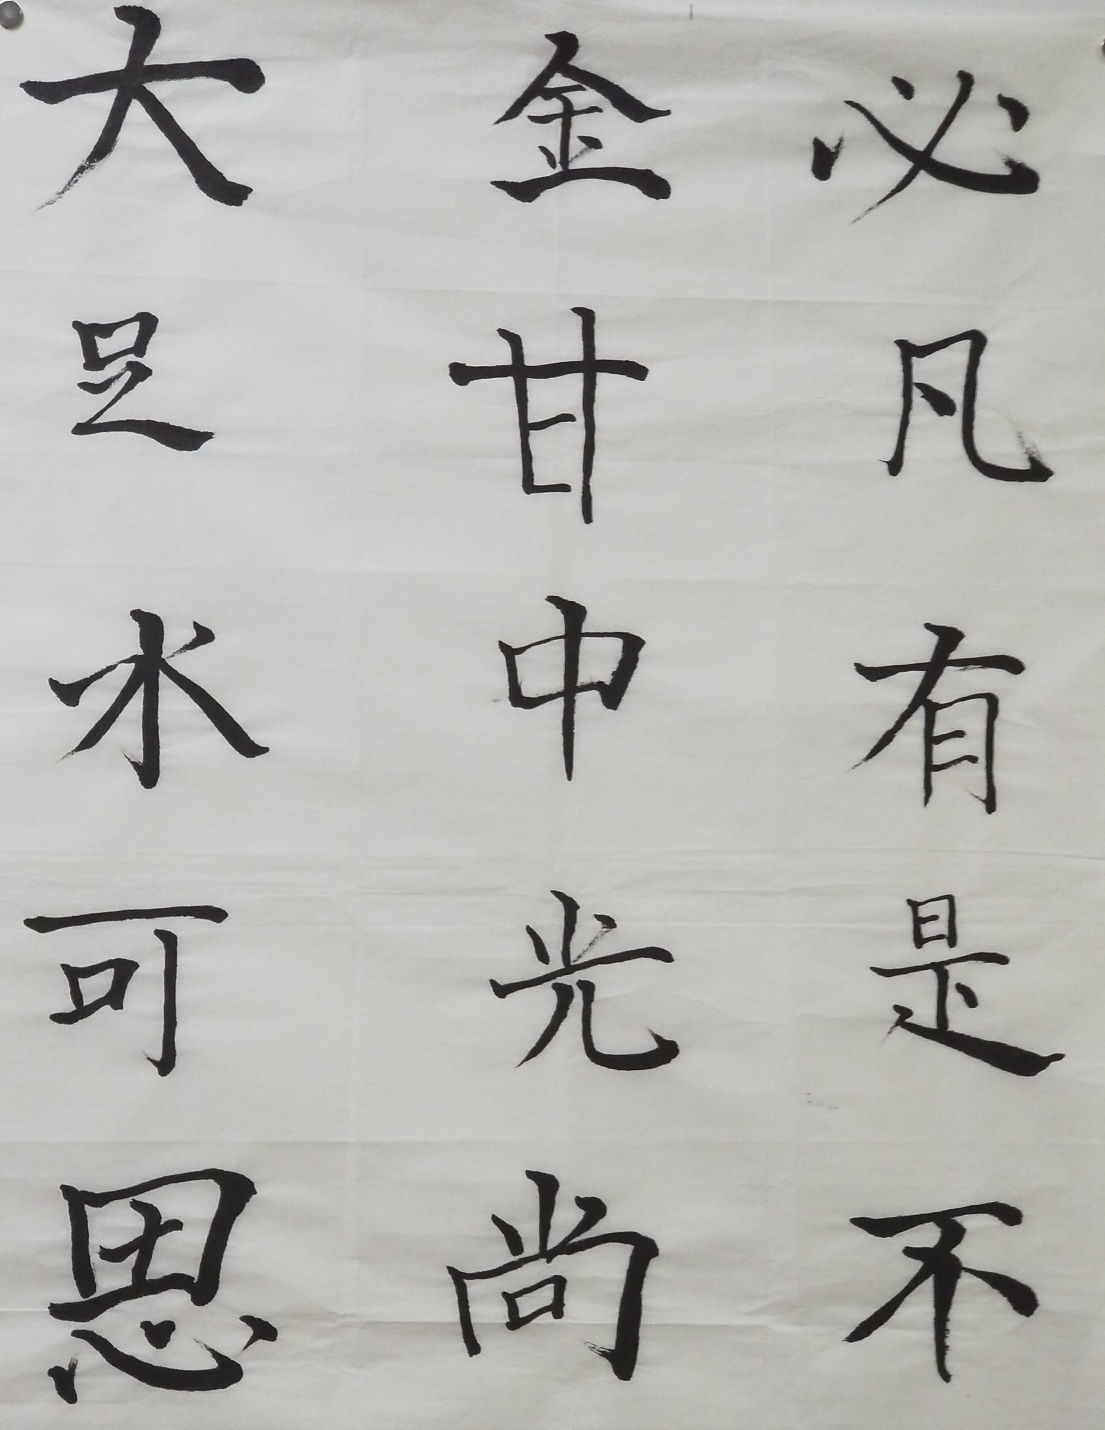 必凡有是不
金甘中光尚
大足水可恩